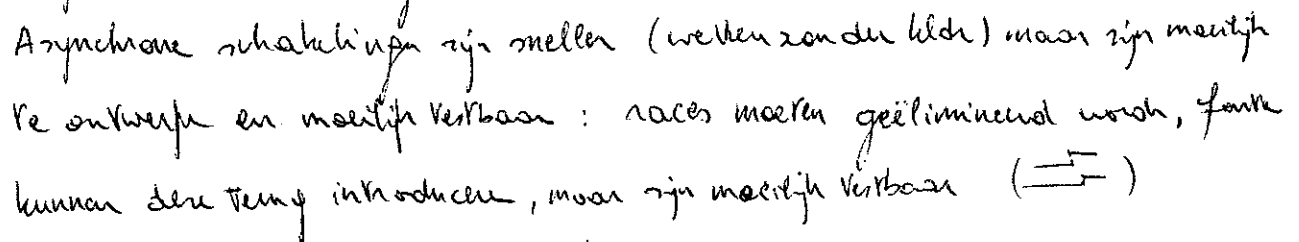 Asynchrone schakelingen zijn sneller (werken zonder klok) maar zijn moeilijk
te ontwerpen en moeilijk testbaar : races moeten geëlimineerd worden, fouten
kunnen deze terug introduceren, maar zijn moeilijk testbaar ( )